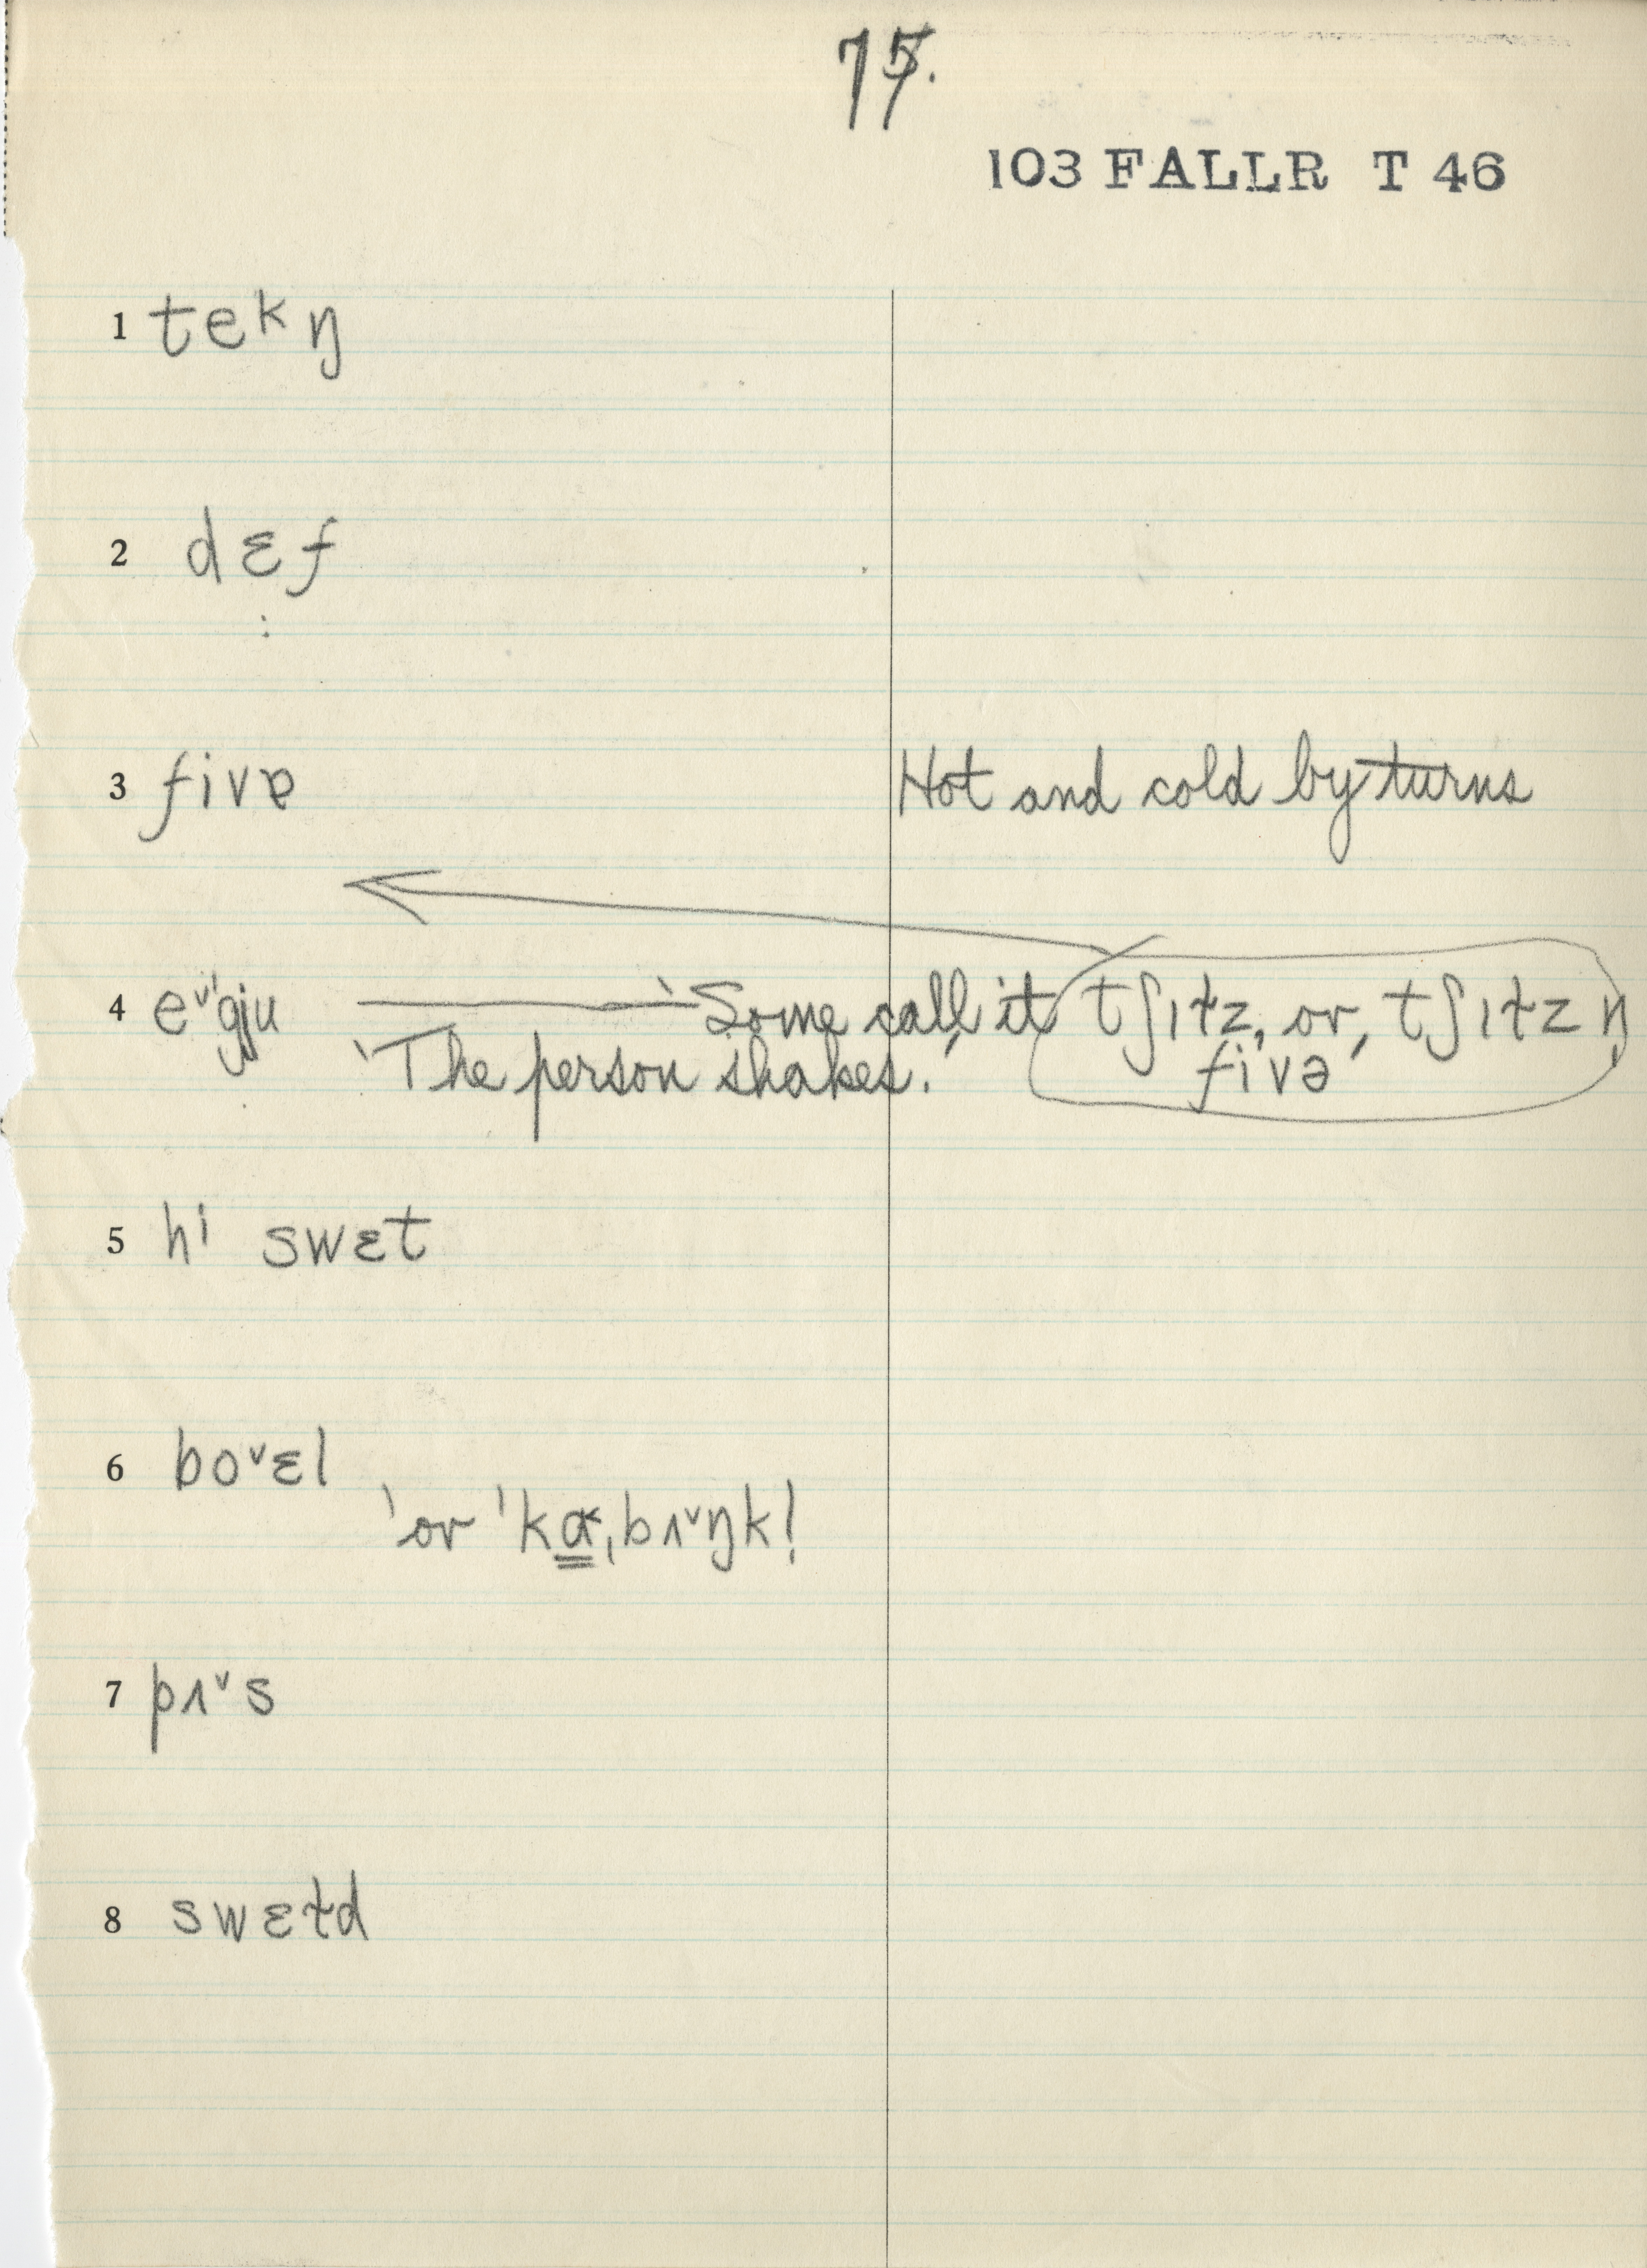 75.
103 FALLR T 46
1 tekŋ
2 dɛf
:
3 fivɐ Hot and cold by turns
4 eᵛgju ——— 'Some call it tʃɪɫz, or, tʃɪɫz ŋ
'The person shakes.' fivə
5 hi swɛt
6 boᵛɛl
'or 'kɑ,bʌᵛŋk!
7 pʌᵛs
8 swɛtd